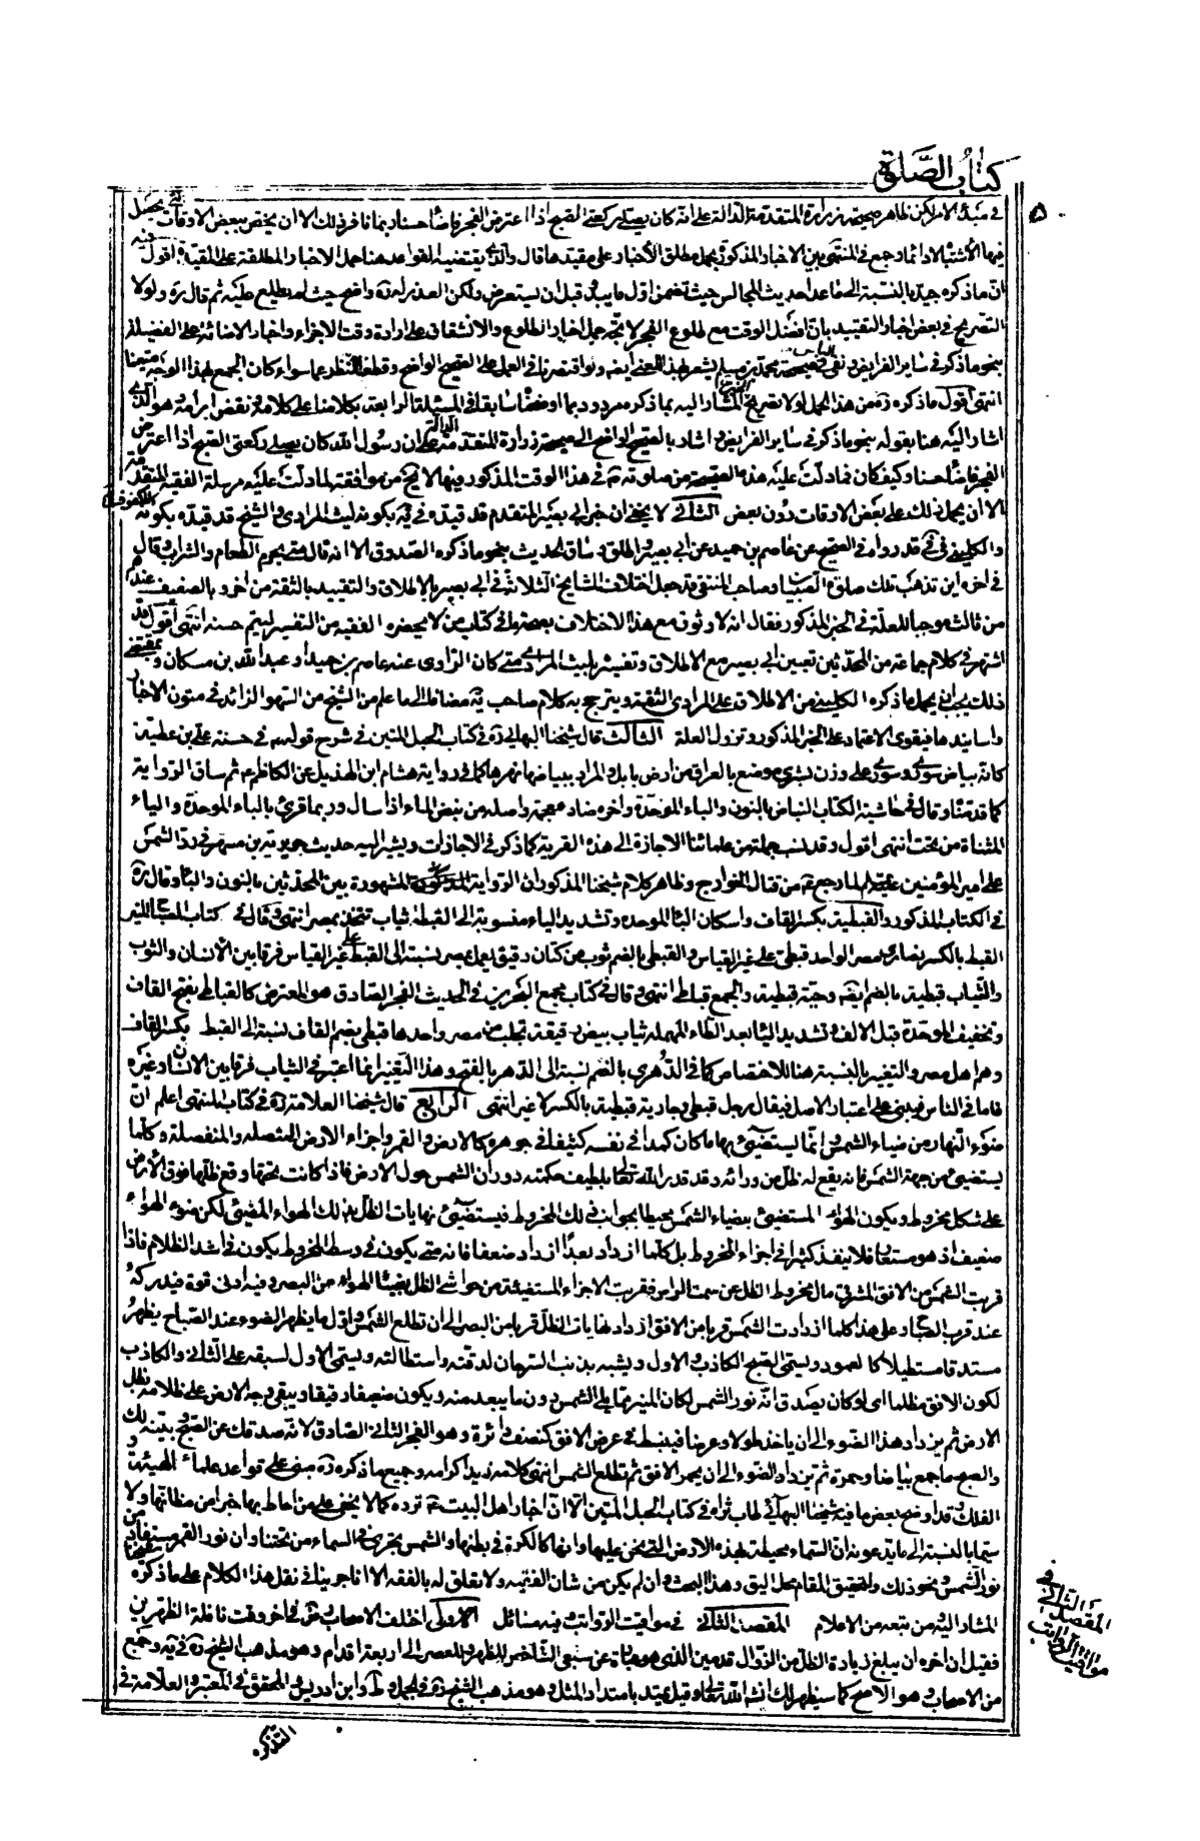 كتاب الصلوة
في مبدء الامر لكن ظاهر صحيحة زرارة المتقدمة الدالة على انه كان يصلي ركعتي الصبح اذا اعترض الفجر فاضاء حسنا ربما نافر ذلك الا ان يخص ببعض الاوقات التي يحصل
فيها الاشتباه دائما وجمع في المنتهى بين الاخبار المذكورة بحمل مطلق الأخبار على مقيدها قال والذي يقتضيه القواعد هنا حمل الاخبار المطلقة على المقيدة اقول فيه
ان ما ذكره جيد بالنسبة الى ما عدا حديث المجالس حيث تضمن اول ما يبدو قبل ان يستعرض ولكن العذر له ره واضح حيث لم يطلع عليه ثم قال ره ولولا
التصريح في بعض اخبار التقييد بان افضل الوقت مع طلوع الفجر لاتجه حمل اخبار الطلوع والانشقاق على ارادة وقت الاجزاء واخبار الاضائة على الفضيلة
بنحو ما ذكر في ساير الفرايض وفي صحيحة محمد بن مسلم يشعر لهذا المعنى ايضه ولو اقتصرنا في العمل على الصحيح الواضح وقطعنا النظر عما سواه كان الجمع بهذا الوجه متعينا
انتهى اقول ما ذكره ره من هذا الحمل لولا تصريح الخبر المشار اليه بما ذكره مردود بما اوضحنا سابقا في المسئلة الرابعة بكلامنا على كلامه ونقض ابرامه وهو الذي
اشار اليه هنا بقوله بنحو ما ذكر في ساير الفرايض واشار بالصحيح الواضح الى صحيحة زرارة المتقدمة الدالة على ان رسول الله كان يصلي ركعتي الصبح اذا اعترض
الفجر فاضاء حسنا وكيف كان فما دلت عليه هذه الصحيحة من صلوته ص في هذا الوقت المذكور فيها لا يخ من موافقة لما دلت عليه مرسلة الفقيه المتقدمة
الا ان يحمل ذلك على بعض الاوقات دون بعض الثاني لا يخفى ان خبر ابي بصير المتقدم قد قيده في يه بكونه ليث المرادي والشيخ قد قيده بكونه المكفوف
والكليني في في قد رواه في الصحيح عن عاصم بن حميد عن ابي بصير واطلق وساق الحديث بنحو ما ذكره الصدوق الا انه قال متى يحرم الطعام والشراب وقال
في اخره اين تذهب تلك صلوة الصبيان وصاحب المنتقى قد جعل اختلاف المشايخ الثلاثة في ابي بصير بالاطلاق والتقييد بالثقة من اخر وبالضعيف عندهم
من ثالث موجبا للعلة في الخبر المذكور فقال انه لا وثوق مع هذا الاختلاف بصحة ما في كتاب من لا يحضره الفقيه من التفسير ليتم حسنه انتهى اقول قد
اشتهر في كلام جماعة من المحدثين تعيين ابي بصير مع الاطلاق وتفسيره بليث المرادي متى كان الراوي عنه عاصم بن حميد او عبد الله بن مسكان وبمقتضى
ذلك يجب ان يحمل ما ذكره الكليني من الاطلاق على المرادي الثقة ويترجح به كلام صاحب يه مضافا الى ما علم من الشيخ من السهو الزائد في متون الاخبار
واسانيدها فيقوى الاعتماد على الخبر المذكور وتزول العلة الثالث قال شيخنا البهائي ره في كتاب الحبل المتين في شرح قوله ع في حسنة علي بن عطية
كانه بياض سورى وسورى على وزن بشرى موضع بالعراق من ارض بابل والمراد ببياضها نهرها كما في رواية هشام ابن الهذيل عن الكاظم ع ثم ساق الرواية
كما قدمناه وقال في حاشية الكتاب النباض بالنون والباء الموحدة واخره ضاد معجمة واصله من نبض الماء اذا سال وربما قرئ بالباء الموحدة والياء
المثناة من تحت انتهى اقول وقد نسب جملة من علمائنا الاجازة الى هذه القرية كما ذكر في الاجازات ويشير اليه حديث جويرية بن مسهر في رد الشمس
على امير المؤمنين عليه السلم لما رجع ع من قتال الخوارج وظاهر كلام شيخنا المذكور ان الرواية المشهورة بين المحدثين بالنون والباء وقال ره
في الكتاب المذكور والقبطية بكسر القاف واسكان الباء الموحدة وتشديد الياء منسوبة الى القبط ثياب تتخذ بمصر انتهى وقال في كتاب المصباح المنير
القبط بالكسر نصارى مصر الواحد قبطي على غير القياس والقبطي بالضم ثوب من كتان رقيق يعمل بمصر نسبة الى القبط على غير القياس فرقا بين الأنسان والثوب
والثياب قبطية بالضم ايضه وجبة قبطية والجمع قباطي انتهى وقال في كتاب مجمع البحرين في الحديث الفجر الصادق هو المعترض كالقباطي بفتح القاف
وتخفيف الموحدة قبل الالف وتشديد الياء بعد الطاء المهملة ثياب بيض رقيقة تجلب من مصر واحدها قبطي بضم القاف نسبة الى القبط بكسر القاف
وهم اهل مصر والتغيير بالنسبة هنا للاختصاص كما في الدهري بالضم نسبة الى الدهر بالفتح وهذا التغيير انما اعتبر في الثياب فرقا بين الانسان وغيره
فاما في الناس فيبنى على اعتبار الاصل فيقال رجل قبطي وجارية قبطية بالكسر لا غير انتهى الرابع قال شيخنا العلامة ره في كتاب المنتهى اعلم ان
ضوء النهار من ضياء الشمس وانما يستضيئ بها ما كان كمدا في نفسه كثيفا في جوهره كالارض والقمر واجزاء الارض المتصلة والمنفصلة وكلما
يستضيئ من جهة الشمس فانه يقع له ظل من ورائه وقد قدر الله تعالى بلطيف حكمته دوران الشمس حول الارض فاذا كانت تحتها وقع ظلها فوق الأرض
على شكل مخروط ويكون الهواء المستضيئ بضياء الشمس محيطا بجوانب ذلك المخروط فيستضيئ نهايات الظل بذلك الهواء المضيئ لكن ضوء الهواء
ضعيف اذ هو مستعار فلا ينفذ كثيرا في اجزاء المخروط بل كلما ازداد بعدا ازداد ضعفا فانه متى يكون في وسط المخروط يكون في اشد الظلام فاذا
قربت الشمس من الافق الشرقي مال مخروط الظل عن سمت الراس وقربت الاجزاء المستضيئة من حواشي الظل بضياء الهواء من البصر وفيه ادنى قوة فيدركه
عند قرب الصباح وعلى هذا كلما ازدادت الشمس قربا من الافق ازداد نهايات الظل قربا من البصر الى ان تطلع الشمس واول ما يظهر الضوء عند الصباح يظهر
مستدقا مستطيلا كالعمود ويسمى الصبح الكاذب والاول ويشبه بذنب السرحان لدقته واستطالته ويسمى الاول لسبقه على الثاني والكاذب
لكون الافق مظلما اي لو كان يصدق انه نور الشمس لكان المنير مما يلي الشمس دون ما يبعد منه ويكون ضعيفا دقيقا ويبقى وجه الارض على ظلامه بظل
الارض ثم يزداد هذا الضوء الى ان ياخذ طولا وعرضا فينبسط في عرض الافق كنصف دائرة وهو الفجر الثاني الصادق لانه صدقك عن الصبح وبينه لك
والصبح ما جمع بياضا وحمرة ثم يزداد الضوء الى ان يحمر الافق ثم تطلع الشمس انتهى كلامه زيد اكرامه وجميع ما ذكره ره مبنى على قواعد علماء الهيئة و
الفلك وقد اوضح بعض ما فيه شيخنا البهائي طاب ثراه في كتاب الحبل المتين الا ان اخبار اهل البيت ع ترده كما لا يخفى على من احاط بها خبرا من مظانها ولا
سيما بالنسبة الى ما يدعونه ان السماء محيطة بهذه الارض التي نحن عليها وانها كالكرة في بطنها والشمس تجري في السماء من تحتنا وان نور القمر مستفاد من
نور الشمس ونحو ذلك وتحقيق المقام بمحل اليق وهذا البحث وان لم يكن من شان الفقيه ولا تعلق له بالفقه الا انا جرينا في نقل هذا الكلام على ما ذكره شيخنا
المشار اليه ومن تبعه من الاعلام المقصد الثاني في مواقيت الرواتب وفيه مسائل الاولى اختلف الاصحاب رض في اخر وقت نافلة الظهرين
فقيل ان اخره ان يبلغ زيادة الظل من الزوال قدمين الذي هو عبارة عن سبعي الشاخص للظهر وللعصر الى اربعة اقدام وهو مذهب الشيخ ره في يه وجمع
من الاصحاب وهو الاصح كما سيظهر لك انشاء الله تعالى وقيل يمتد بامتداد المثل وهو مذهب الشيخ ره في الجمل و ط وابن ادريس والمحقق في المعتبر والعلامة في
التذكرة
المقصد الثاني في
مواقيت الرواتب